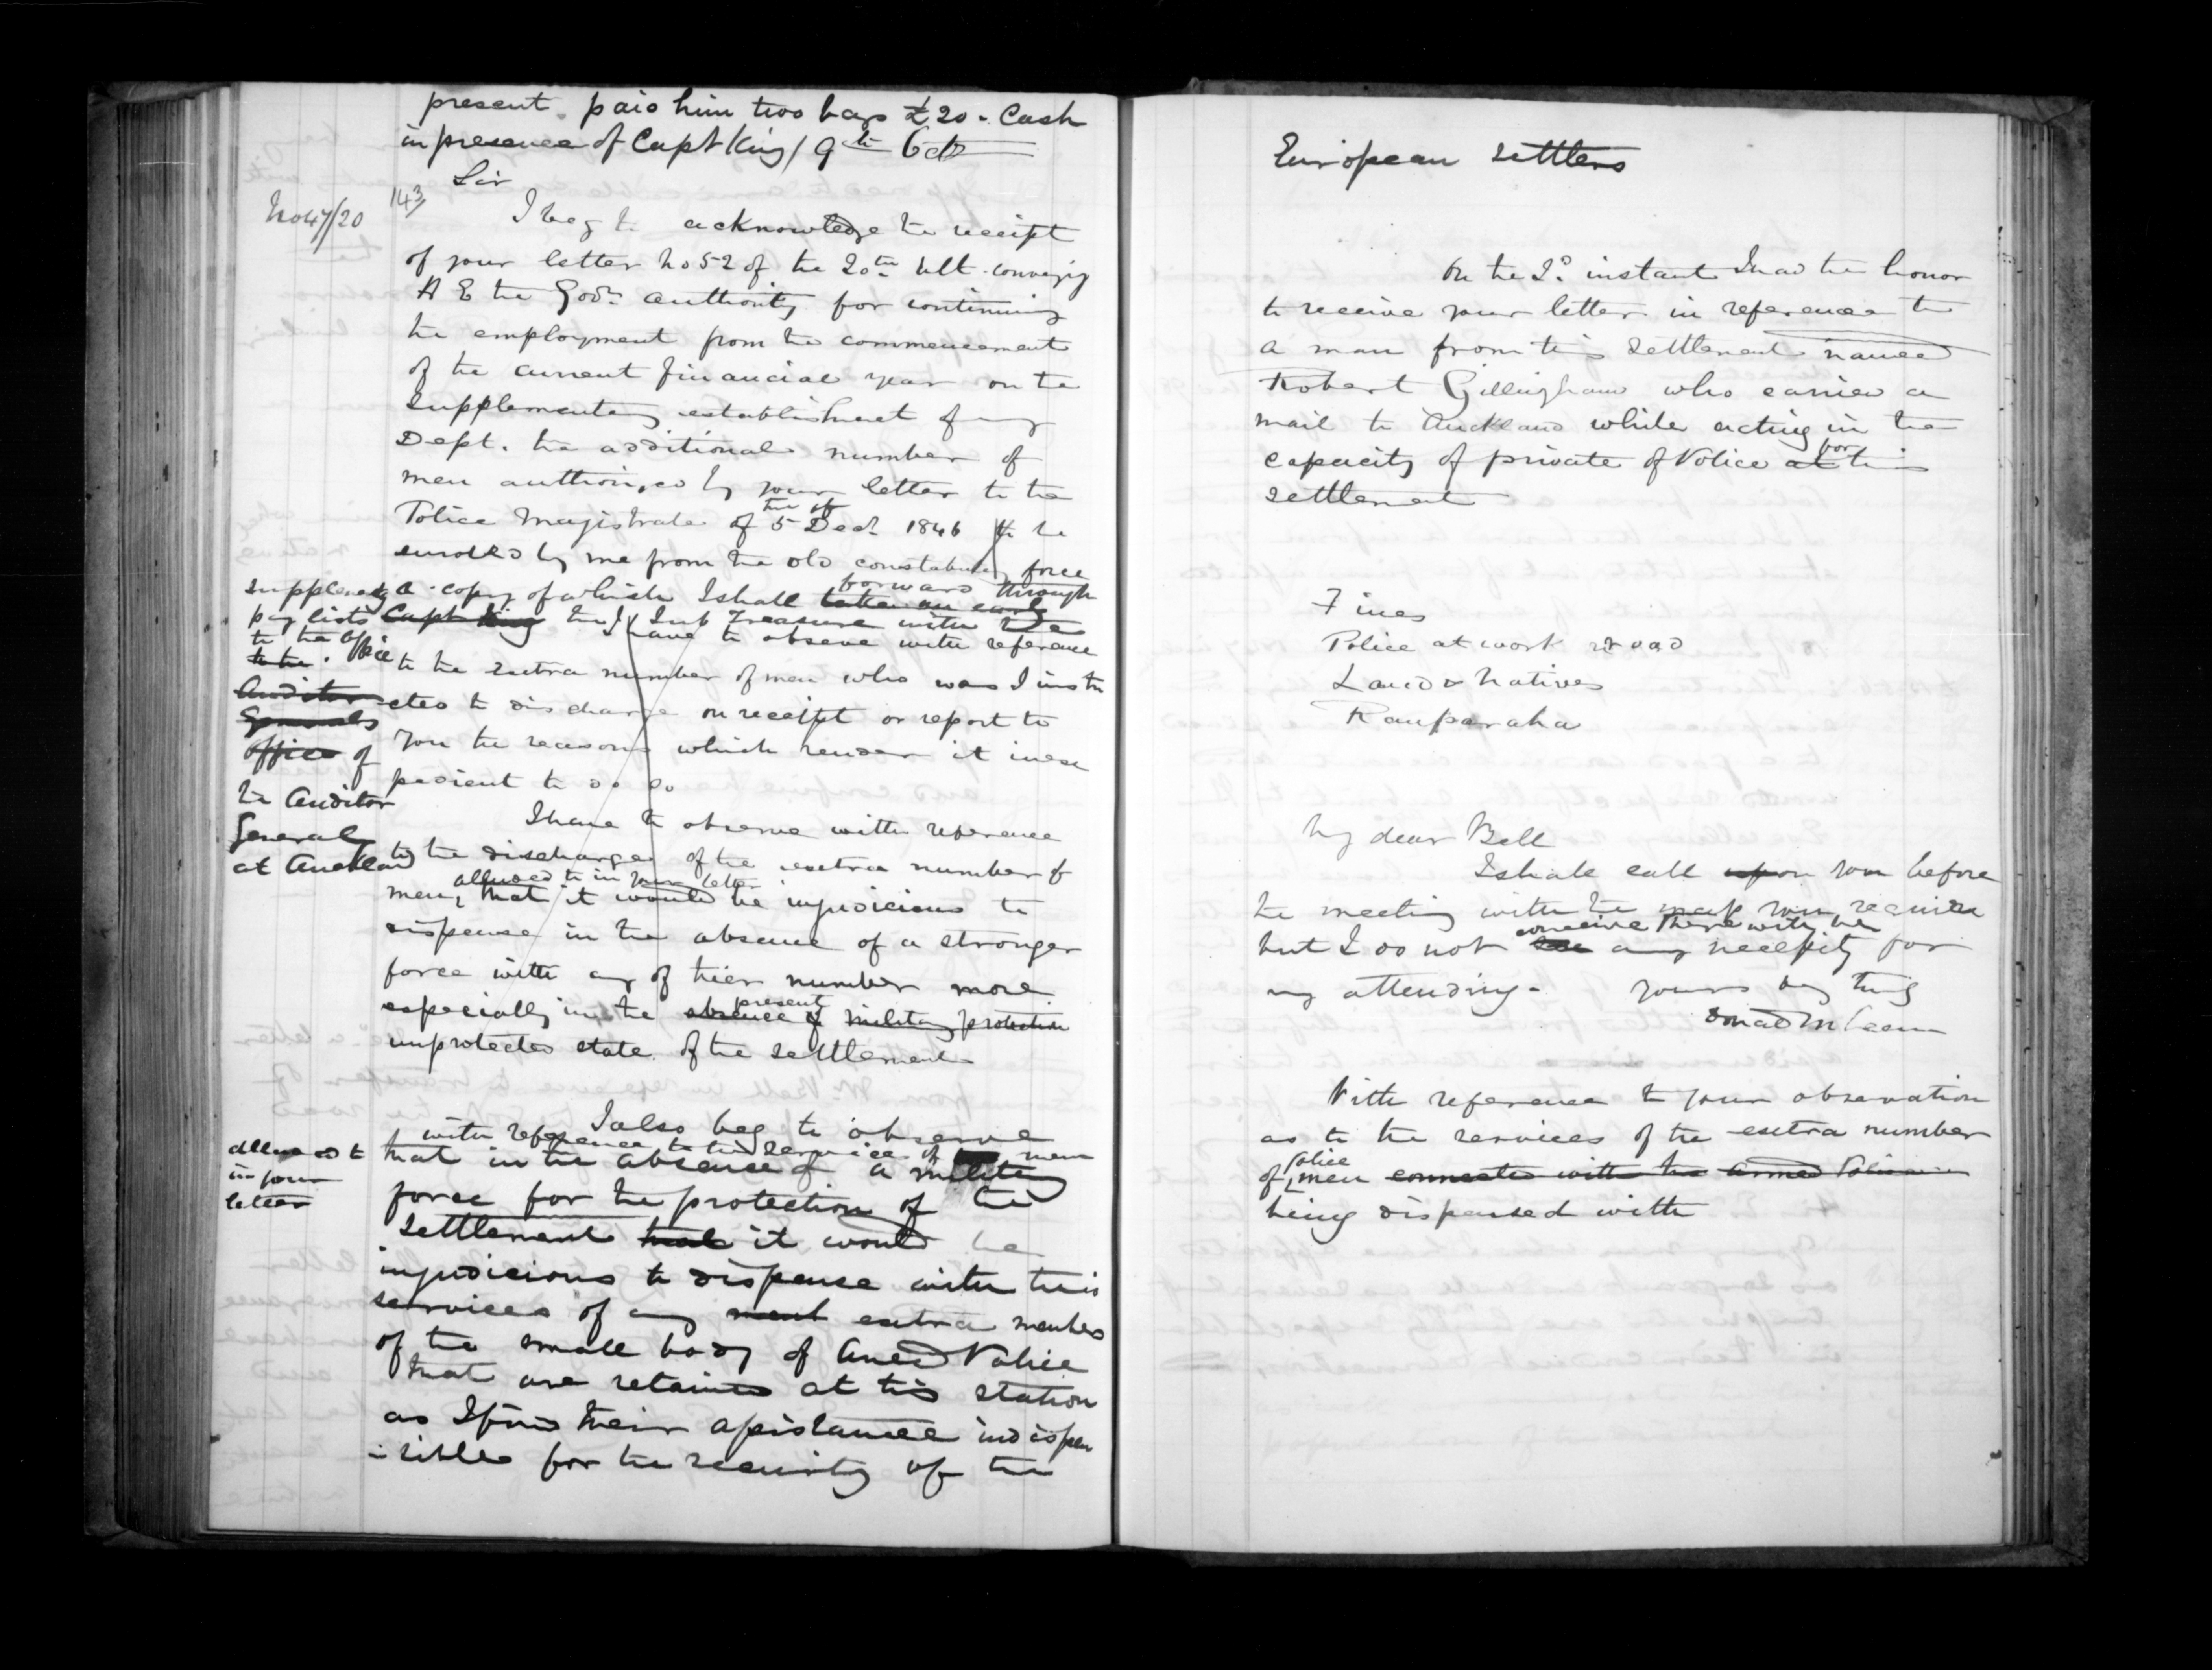 present. paid him two bags £20 - Cash
in presence of Capt King / 9th Oct
Sir
No 47/20
143/
I beg to acknowledge the receipt
of your letter No 52 of the 20th ult. conveying
H E the Govrs authority for continuing
the employment from the commencement
of the current financial year on the
Supplementary establishment of my
Dept. the additional number of
men authorized by your letter to the
Police Magistrate of the 5 of Decr 1846 to be
enrolled by me from the old constabulary force
supplementary a copy of which I shall take an early forward through
pay lists Capt King the Sub Treasurer with the
to the Office I have to observe with reference
to the to the extra number of men who was I instru
Auditor cted to discharge on receipt or report to
Generals
office of you the reasons which render it inex
pedient to do so
the Auditor
General
at Auckland
I have to observe with reference
to the discharge of the extra number of
men, alluded to in your letter that it would be injudicious to
dispense in the absence of a stronger
force with any of their number more
especially in the absence of military protection present
unprotected state of the settlement
I also beg to observe
with reference to the services of men
alluded to
in your
letter
that in the absence of a military
force for the protection of the
Settlement that it would be
injudicious to dispense with this
services of any extra members
of the small body of Armed Police
that are retained at this station
as I find their assistance indispen
-sible for the security of the
European settlers
On the 2d instant I had the honor
to receive your letter in reference to
a man from this settlement named
Robert Gillingham who carried a
mail to Auckland while acting in the
capacity of private of Police at for this
settlement
Fines
Police at work road
Land & Natives
Rauparaha
My dear Bell
I shall call upon you before
the meeting with the you require
but I do not see conceive there will be any necessity for
my attending. Yours very truly
Donald McLean
With reference to your observation
as to the services of the extra number
of Police men connected with the Armed Police
being dispensed with